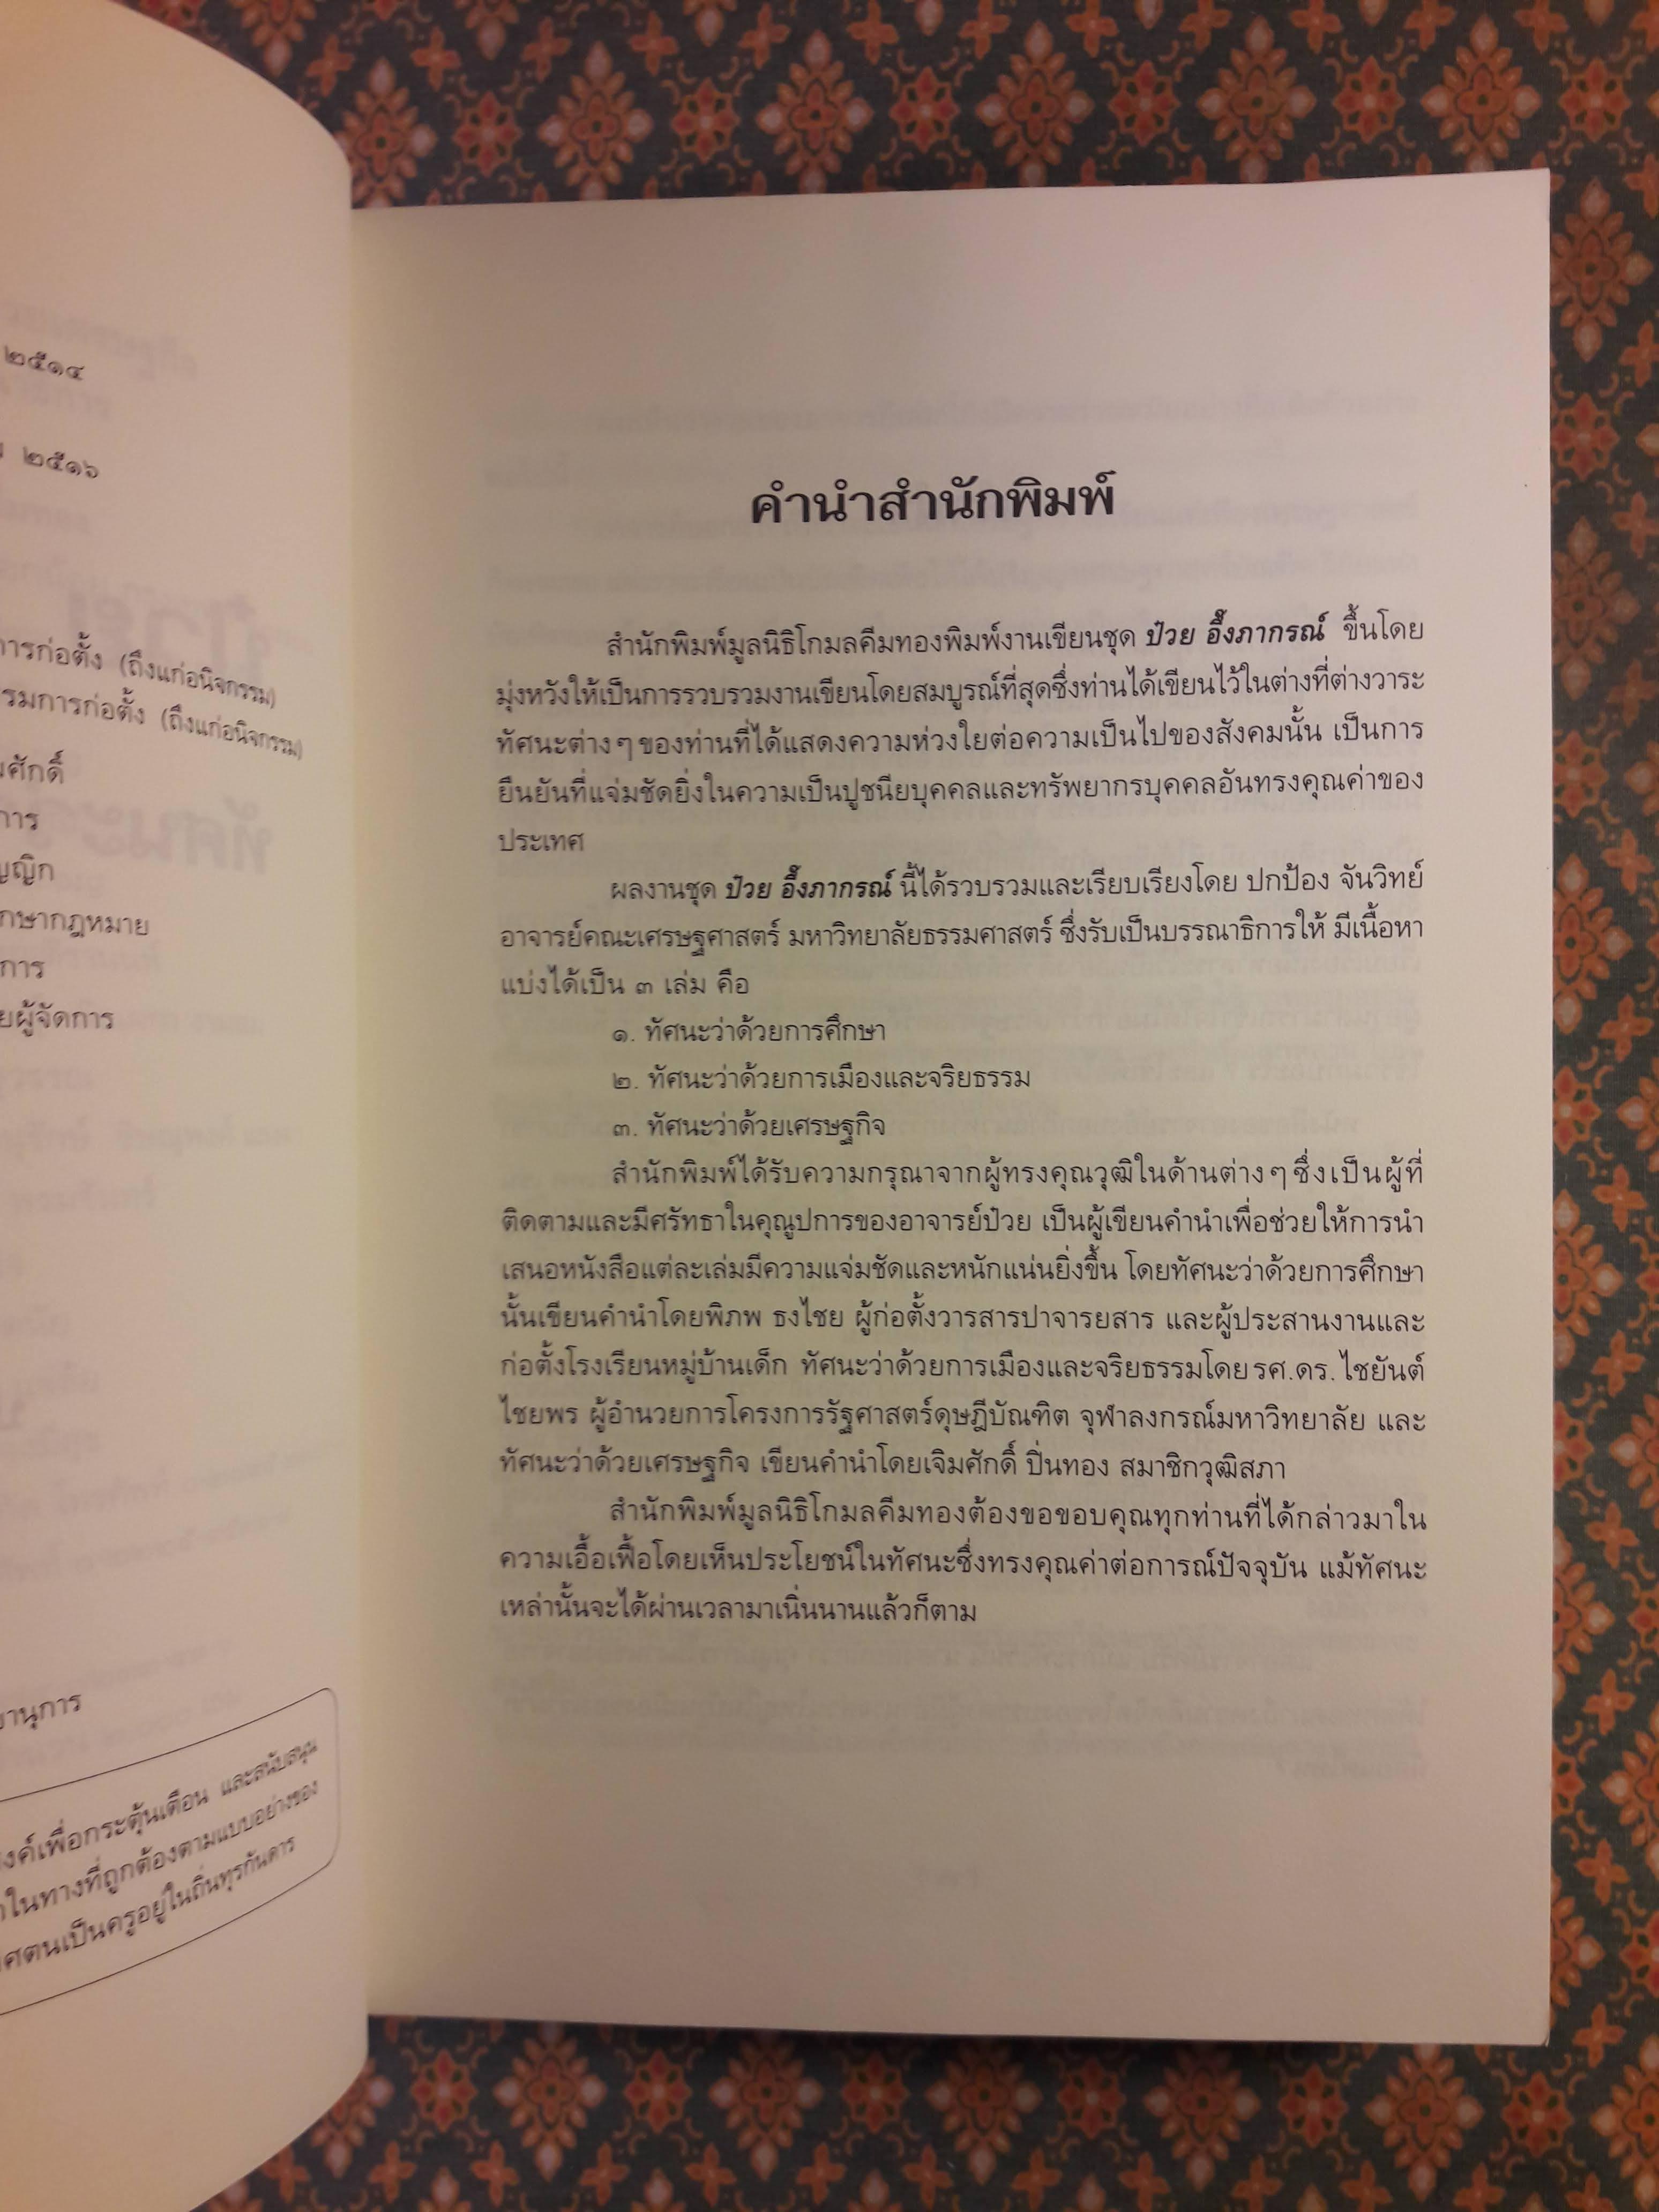 ๒๕๑๔
๒๕๑๖
การก่อตั้ง (ถึงแก่อนิจกรรม)
รมการก่อตั้ง (ถึงแก่อนิจกรรม)
ศักดิ์
การ
ญญิก
กษากฎหมาย
การ
ยผู้จัดการ
านุการ
งค์เพื่อกระตุ้นเตือน และสนับสนุน
ในทางที่ถูกต้องตามแบบอย่างของ
ศตนเป็นครูอยู่ในถิ่นทุรกันดาร
คำนำสำนักพิมพ์
สำนักพิมพ์มูลนิธิโกมลคีมทองพิมพ์งานเขียนชุด ป๋วย อึ๊งภากรณ์ ขึ้นโดย
มุ่งหวังให้เป็นการรวบรวมงานเขียนโดยสมบูรณ์ที่สุดซึ่งท่านได้เขียนไว้ในต่างที่ต่างวาระ
ทัศนะต่างๆ ของท่านที่ได้แสดงความห่วงใยต่อความเป็นไปของสังคมนั้น เป็นการ
ยืนยันที่แจ่มชัดยิ่งในความเป็นปูชนียบุคคลและทรัพยากรบุคคลอันทรงคุณค่าของ
ประเทศ
ผลงานชุด ป๋วย อึ๊งภากรณ์ นี้ได้รวบรวมและเรียบเรียงโดย ปกป้อง จันวิทย์
อาจารย์คณะเศรษฐศาสตร์ มหาวิทยาลัยธรรมศาสตร์ ซึ่งรับเป็นบรรณาธิการให้ มีเนื้อหา
แบ่งได้เป็น ๓ เล่ม คือ
๑. ทัศนะว่าด้วยการศึกษา
๒. ทัศนะว่าด้วยการเมืองและจริยธรรม
๓. ทัศนะว่าด้วยเศรษฐกิจ
สำนักพิมพ์ได้รับความกรุณาจากผู้ทรงคุณวุฒิในด้านต่างๆ ซึ่งเป็นผู้ที่
ติดตามและมีศรัทธาในคุณูปการของอาจารย์ป๋วย เป็นผู้เขียนคำนำเพื่อช่วยให้การนำ
เสนอหนังสือแต่ละเล่มมีความแจ่มชัดและหนักแน่นยิ่งขึ้น โดยทัศนะว่าด้วยการศึกษา
นั้นเขียนคำนำโดยพิภพ ธงไชย ผู้ก่อตั้งวารสารปาจารยสาร และผู้ประสานงานและ
ก่อตั้งโรงเรียนหมู่บ้านเด็ก ทัศนะว่าด้วยการเมืองและจริยธรรมโดย รศ.ดร. ไชยันต์
ไชยพร ผู้อำนวยการโครงการรัฐศาสตร์ดุษฎีบัณฑิต จุฬาลงกรณ์มหาวิทยาลัย และ
ทัศนะว่าด้วยเศรษฐกิจ เขียนคำนำโดยเจิมศักดิ์ ปิ่นทอง สมาชิกวุฒิสภา
สำนักพิมพ์มูลนิธิโกมลคีมทองต้องขอขอบคุณทุกท่านที่ได้กล่าวมาใน
ความเอื้อเฟื้อโดยเห็นประโยชน์ในทัศนะซึ่งทรงคุณค่าต่อการณ์ปัจจุบัน แม้ทัศนะ
เหล่านั้นจะได้ผ่านเวลามาเนิ่นนานแล้วก็ตาม